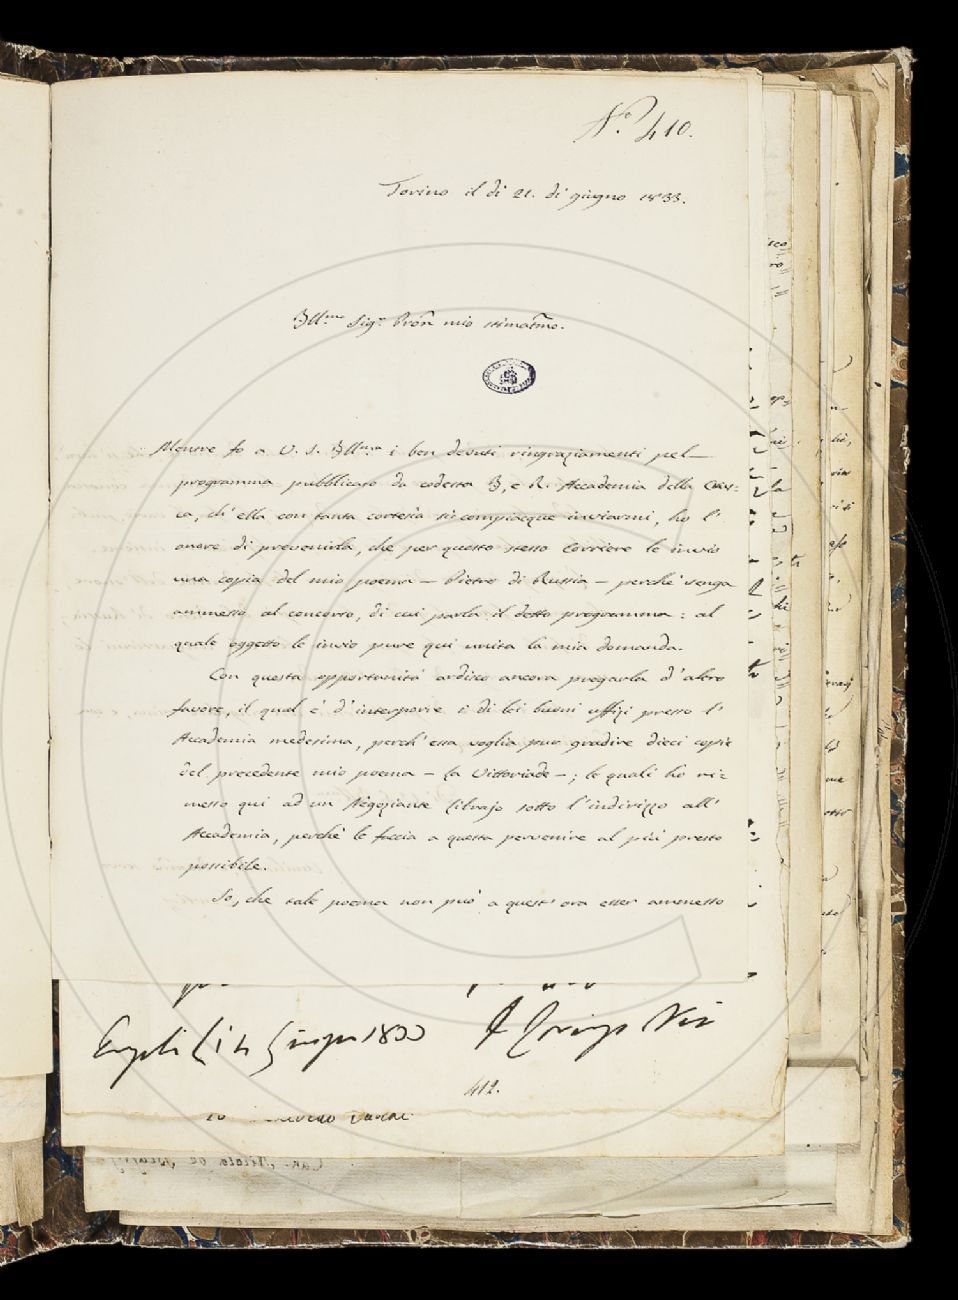 N.° 410.
Torino il dì 21. di giugno 1833.
Ill.mo Sig.r Pron mio stimatmo.
Mentre fo a V. S. Ill.ma i ben dovuti ringraziamenti pel
programma pubblicato da codesta I, e R. Accademia della Crus=
ca, ch'ella con tanta cortesia si compiacque inviarmi, ho l'
onore di prevenirla, che per questo stesso Corriere le invio
una copia del mio poema — Pietro di Russia — perchè venga
ammesso al concorso, di cui parla il detto programma: al
quale oggetto le invio pure qui unita la mia domanda.
Con questa opportunità ardisco ancora pregarla d'altro
favore, il qual è d'interporre i di lei buoni uffizi presso l'
Accademia medesima, perch'essa voglia pur gradire dieci copie
del precedente mio poema — la Vittoriade —; le quali ho ri=
messo qui ad un Negoziante Librajo sotto l'indirizzo all'
Accademia, perchè le faccia a questa pervenire al più presto
possibile.
So, che tale poema non può a quest'ora esser ammesso
Empoli 14 Giugno 1833
412.